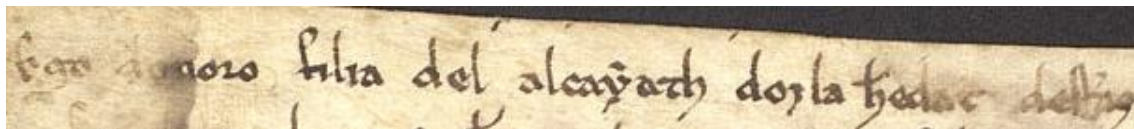 Ego do noro filia del alcayath dozla hedat